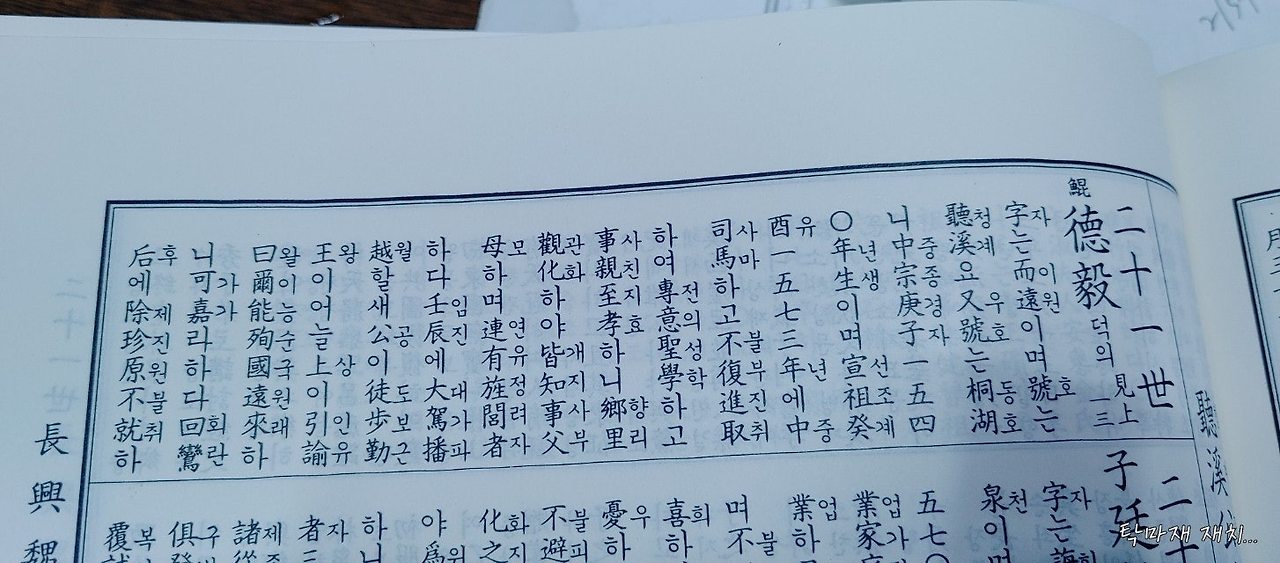 聽溪
二十一世
鯤 德毅 덕의 見上一三
字는而遠이며號는
자 이원 호
聽溪요又號는桐湖
청계 우호 동호
니中宗庚子一五四
중종경자
〇年生이며宣祖癸
년생 선조계
酉一五七三年에中
유 년 중
司馬하고不復進取
사마 불부진취
하여專意聖學하고
전의성학
事親至孝하니鄕里
사친지효 향리
觀化하야皆知事父
관화 개지사부
母하며連有旌閭者
모 연유정려자
하다壬辰에大駕播
임진 대가파
越할새公이徒步勤
월 공 도보근
王이어늘上이引諭
왕 상 인유
曰爾能殉國遠來하
왕이능순국원래
니可嘉라하다回鸞
가가 회란
后에除珍原不就하
후 제진원불취
二十
子廷
字는誨
자
泉이며
천
五七〇
業家
업가
業하
업
며不
불
喜하
희
憂하
우
不避
불피
化之
화지
야爲
위
하니
者三
자
諸從
제
俱發
구
覆
복
長興魏
탁마재 재치...